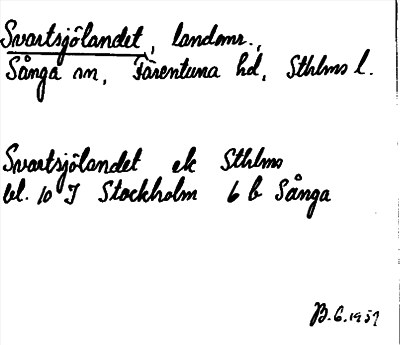 Svartsjölandet, landsmr.,
Sånga sn, Färentuna hd, Sthlms l.
Svartsjölandet ek Sthlms
bl. 10 I Stockholm 6 b Sånga
B.G. 1957